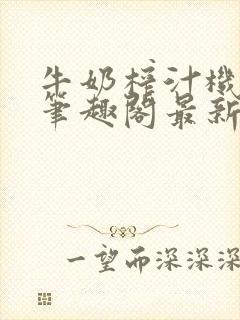 牛奶榨汁機
筆趣閣最新
一望而深深深